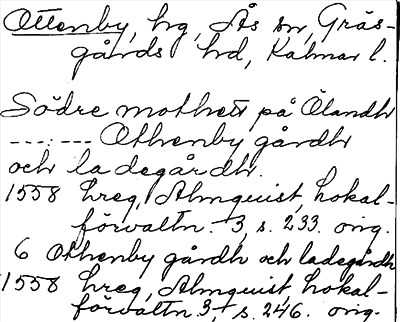 Ottenby, hg, Ås sn, Gräs-
gårds hd, Kalmar l.
Södre mothett på Ölandh
---:--- Othenby gårdh
och ladegårdh.
1558 hreg, Almquist, Lokal-
förvaltn. 3, s. 233. orig.
6 Othenby gårdh och ladegårdh
1558 hreg, Almquist, Lokal-
förvaltn. 3, s. 246. orig.